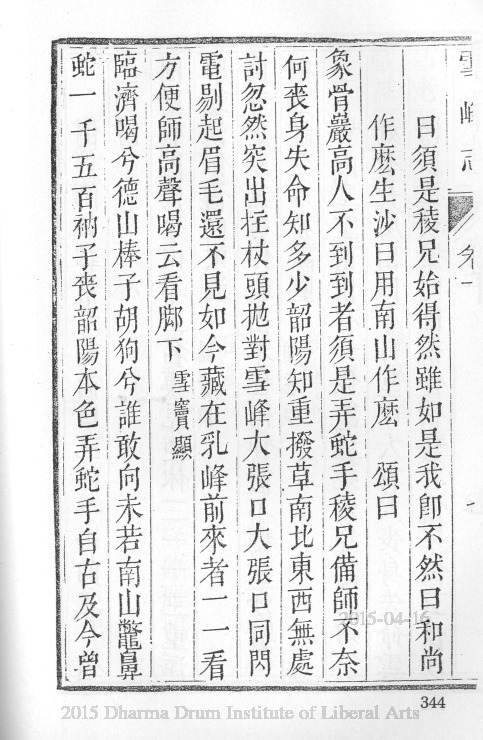 雪峰志
曰須是稜兄始得然雖如是我卽不然曰和尚
作麽生沙曰用南山作麽　頌曰
象骨巖高人不到到者須是弄蛇手稜兄備師不奈
何喪身失命知多少韶陽知重撥草南北東西無處
討忽然突出拄杖頭拋對雪峰大張口大張口同閃
電剔起眉毛還不見如今藏在乳峰前來者一一看
方便師高聲喝云看脚下　雪竇顯
臨濟喝兮德山棒子胡狗兮誰敢向未若南山鼈鼻
蛇一千五百衲子喪韶陽本色弄蛇手自古及今曾
344
2015-04-16
2015 Dharma Drum Institute of Liberal Arts